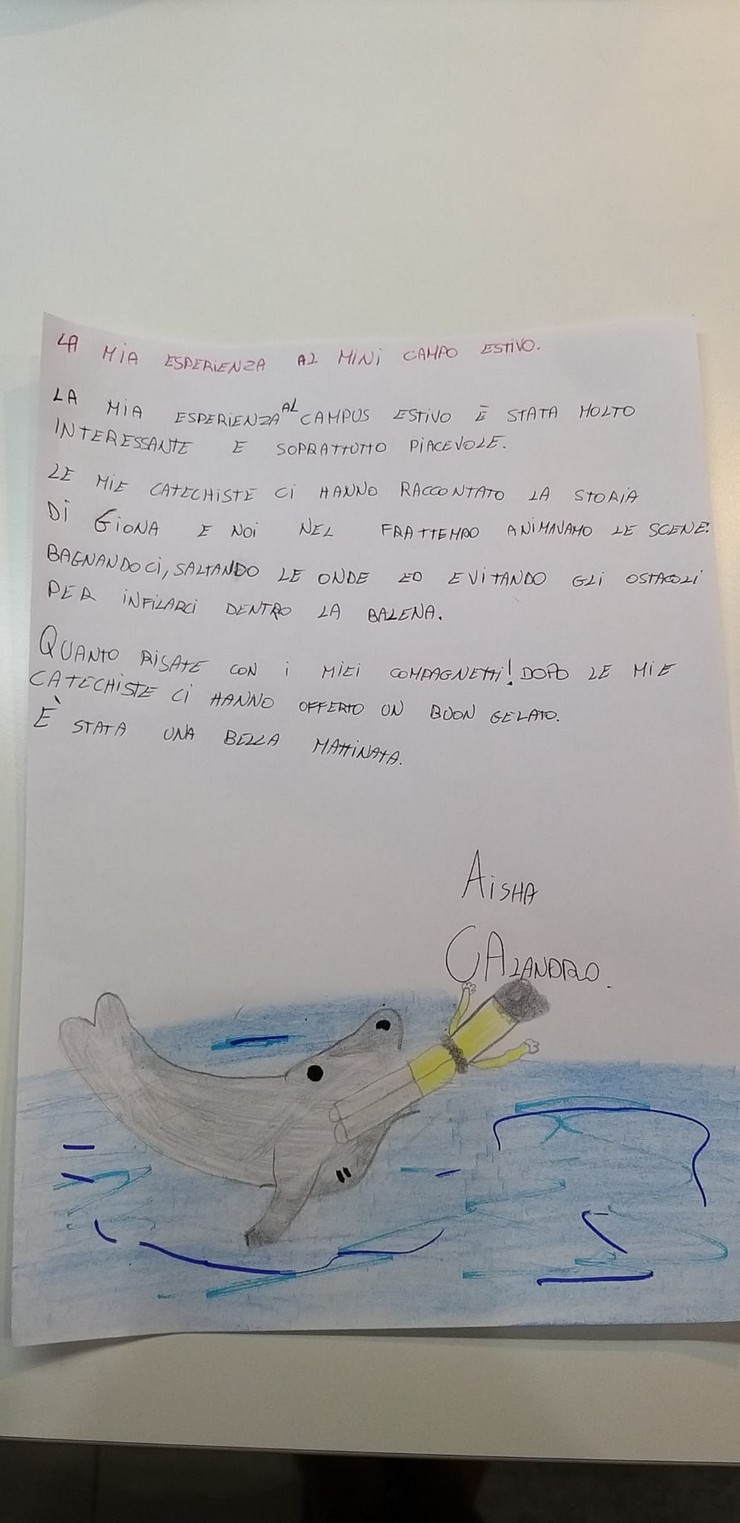 LA MIA ESPERIENZA AL MINI CAMPO ESTIVO.
LA MIA ESPERIENZA AL CAMPUS ESTIVO È STATA MOLTO
INTERESSANTE E SOPRATTUTTO PIACEVOLE.
LE MIE CATECHISTE CI HANNO RACCONTATO LA STORIA
DI GIONA E NOI NEL FRATTEMPO ANIMAVAMO LE SCENE:
BAGNANDOCI, SALTANDO LE ONDE ED EVITANDO GLI OSTACOLI
PER INFILARCI DENTRO LA BALENA.
QUANTO RISATE CON I MIEI COMPAGNETTI! DOPO LE MIE
CATECHISTE CI HANNO OFFERTO UN BUON GELATO.
È STATA UNA BELLA MATTINATA.
AISHA
CALANDRO.